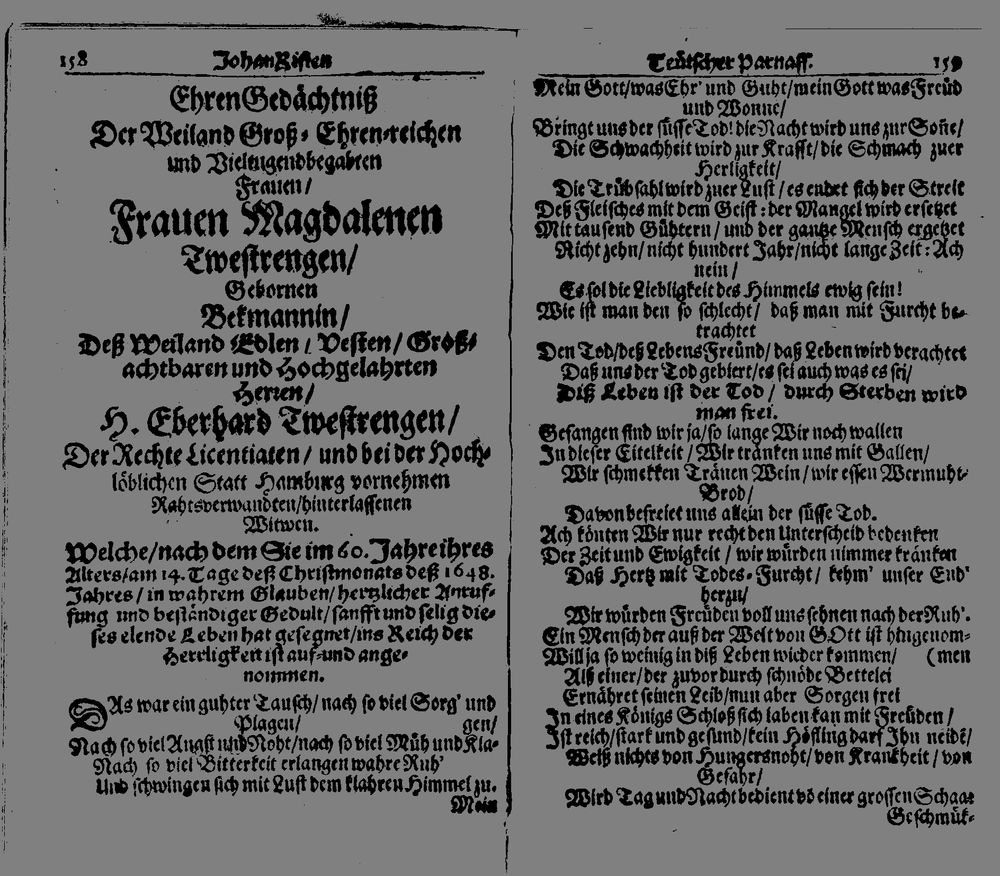 158 Johan Risten
EhrenGedächtniß
Der Weiland Groß-Ehren-reichen
und Vieltugendbegabten
Frauen/
Frauen Magdalenen
Twestrengen/
Gebornen
Bekmannin/
Deß Weiland Edlen/ Vesten/ Groß-
achtbaren und Hochgelahrten
Herren/
H. Eberhard Twestrengen/
Der Rechte Licentiaten/ und bei der Hoch-
löblichen Statt Hamburg vornehmen
Rahtsverwandten/hinterlassenen
Witwen.
Welche/nach dem Sie im 60. Jahre ihres
Alters/am 14. Tage deß Christmonats deß 1648.
Jahres/ in wahrem Glauben/ hertzlicher Anruf-
fung und beständiger Gedult/sanfft und selig die-
ses elende Leben hat gesegnet/ins Reich der
Herrligkeit ist auf-und ange-
nommen.
DAs war ein guhter Tausch/ nach so viel Sorg' und
Plagen/ gen/
Nach so viel Angst und Noht/nach so viel Müh und Kla-
Nach so viel Bitterkeit erlangen wahre Ruh'
Und schwingen sich mit Lust dem klahren Himmel zu.
Mein
Teütscher Parnass. 159
Mein Gott/was Ehr' und Guht/mein Gott was Freüd
und Wonne/
Bringt uns der süsse Tod! die Nacht wird uns zur Soñe/
Die Schwachheit wird zur Krafft/die Schmach zuer
Herligkeit/
Die Trübsahl wird zuer Lust/ es endet sich der Streit
Deß Fleisches mit dem Geist: der Mangel wird ersetzet
Mit tausend Gühtern/ und der gantze Mensch ergetzet
Nicht zehn/nicht hundert Jahr/nicht lange Zeit: Ach
nein/
Es sol die Liebligkeit des Himmels ewig sein!
Wie ist man den so schlecht/ daß man mit Furcht be-
trachtet
Den Tod/deß Lebens Freünd/ daß Leben wird verachtet
Daß uns der Tod gebiert/es sei auch was es sei/
Diß Leben ist der Tod/ durch Sterben wird
man frei.
Gefangen sind wir ja/so lange Wir noch wallen
In dieser Eitelkeit/ Wir tränken uns mit Gallen/
Wir schmekken Tränen Wein/wir essen Wermuht-
Brod/
Davon befreiet uns allein der süsse Tod.
Ach könten Wir nur recht den Unterscheid bedenken
Der Zeit und Ewigkeit/ wir würden nimmer kränken
Daß Hertz mit Todes-Furcht/ kehm' unser End'
herzu/
Wir würden Freüden voll uns sehnen nach der Ruh'.
Ein Mensch der auß der Welt von GOtt ist hingenom-
Will ja so weinig in diß Leben wieder kommen/ (men
Alß einer/der zuvor durch schnöde Bettelei
Ernähret seinen Leib/nun aber Sorgen frei
In eines Königs Schloß sich laben kan mit Freüden/
Ist reich/stark und gesund/kein Höfling darf Ihn neidẽ/
Weiß nichts von Hungersnoht/von Krankheit/von
Gefahr/
Wird Tag und Nacht bedient võ einer grossen Schaar
Geschmük-